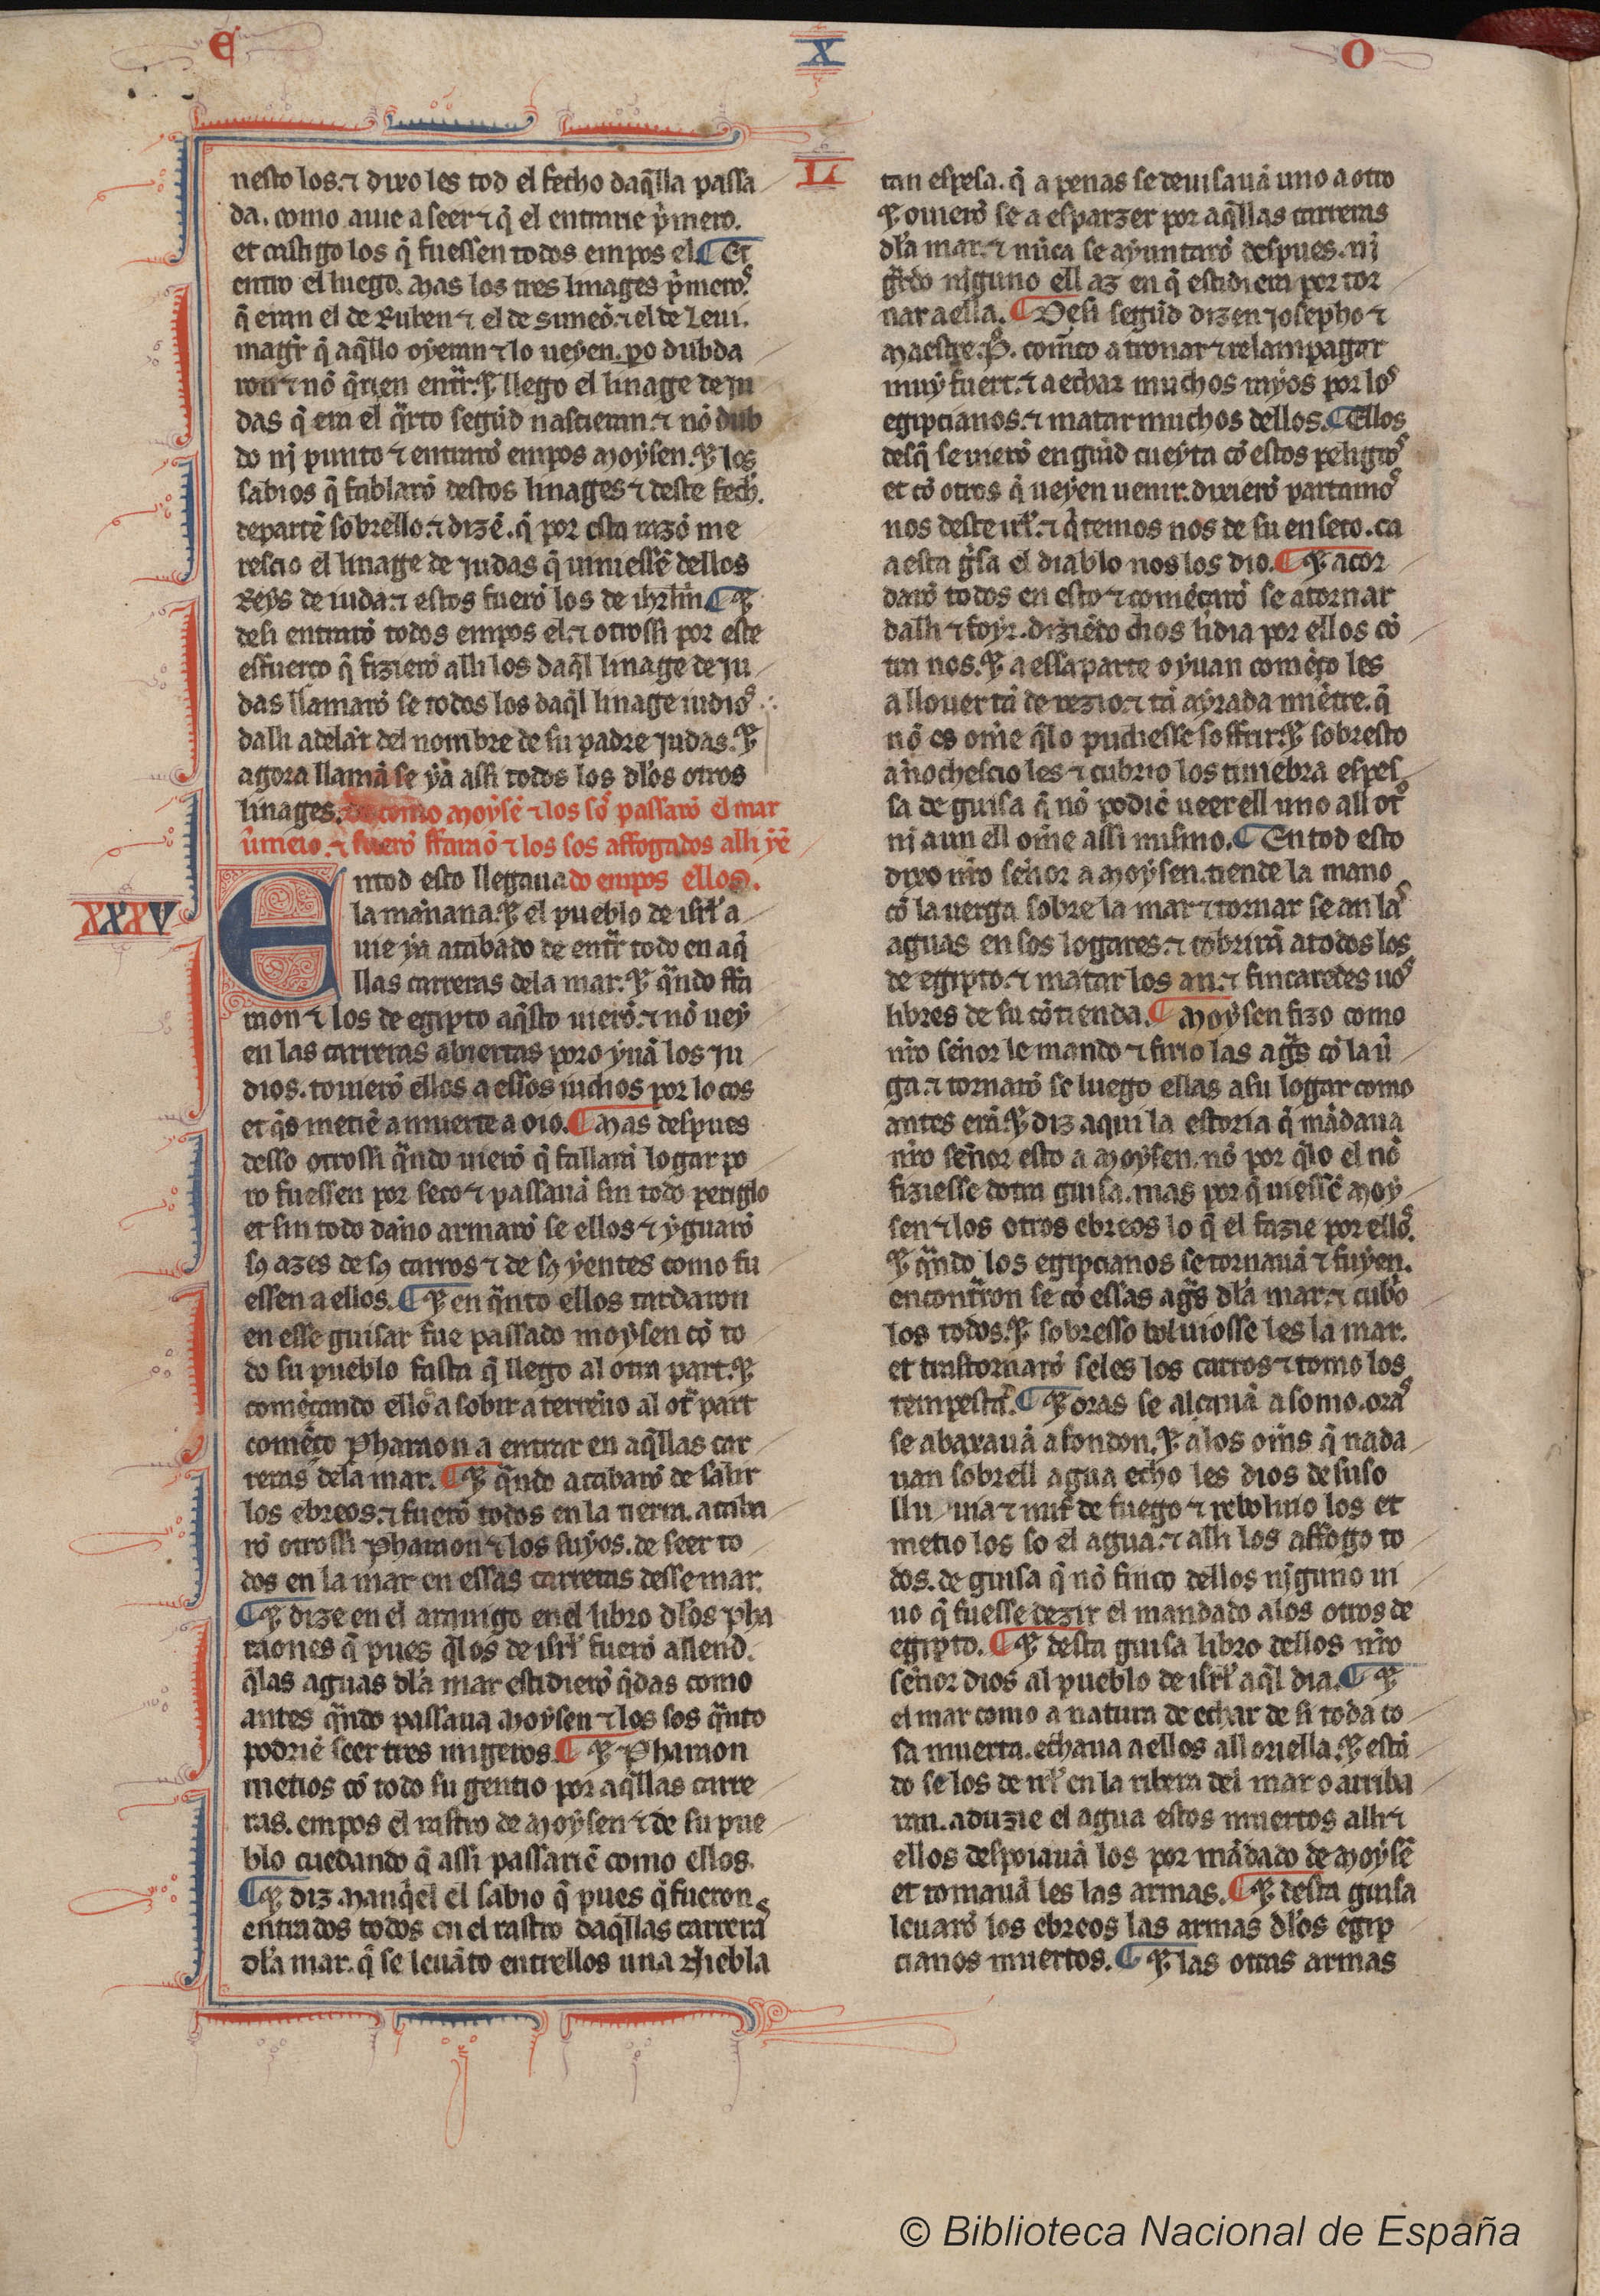 E X O
L
nesto los. ⁊ dixo les tod el fecho daq̃lla passa
da. como auie a seer ⁊ q̃ el entrarie p̃mero.
et castigo los q̃ fuessen todos empos el. ¶ Et
entro el luego. Mas los tres linages p̃meros.
q̃ eran el de Ruben ⁊ el de Simeõ. ⁊ el de Leui.
magr̃ q̃ aq̃llo oyeran ⁊ lo ueyen. po dubda
ron ⁊ nõ q̃rien entr̃. ⁊ llego el linage de Ju
das q̃ era el q̃rto segũd nascieran. ⁊ nõ dub
do nj punto ⁊ entrarõ empos Moysen. ⁊ los
sabios q̃ fablarõ destos linages ⁊ deste fech.
departẽ sobrello. ⁊ dizẽ. q̃ por esta razõ me
rescio el linage de Judas q̃ uiniessẽ dellos
Reys de iuda. ⁊ estos fuerõ los de ihrlm̃. ¶ ⁊
desi entrarõ todos empos el. ⁊ otrossi por este
esfuerço q̃ fizierõ alli los daq̃l linage de Ju
das llamarõ se todos los daq̃l linage iudios
dalli adelãt del nombre de su padre Judas. ⁊
agora llamã se ya assi todos los dl̃os otros
linages. De como Moysẽ ⁊ los sos passarõ el mar
ũmeio. ⁊ fuerõ ffaraõ ⁊ los sos affogados alli yẽ
do empos ellos.
XXXV
Entod esto llegaua
la mañana. ⁊ el pueblo de isrl̃ a
uie ya acabado de entr̃ todo en aq̃
llas carreras dela mar. ⁊ q̃ndo ffa
raon ⁊ los de egipto aq̃sto uierõ. ⁊ nõ uey
en las carreras abiertas poro yuã los Ju
dios. touierõ ellos a essos iuchos por locos
et q̃s metiẽ a muerte a oio. ¶ Mas despues
desso otrossi q̃ndo uierõ q̃ fallarã logar po
ro fuessen por seco ⁊ passauã sin todo periglo
et sin todo daño armarõ se ellos ⁊ yguarõ
sꝯ azes de sꝯ carros ⁊ de sꝯ yentes como fu
essen a ellos. ¶ ⁊ en q̃nto ellos tardaron
en esse guisar fue passado moysen cõ to
do su pueblo fasta q̃ llego al otra part. ⁊
comẽçando ellos a sobir a terreno al ot̃ part
comẽço Pharaon a entrar en aq̃llas car
reras dela mar. ¶ ⁊ q̃ndo acabarõ de salir
los ebreos. ⁊ fuerõ todos en la tierra. acaba
rõ otrossi Pharaon ⁊ los suyos. de seer to
dos en la mar en essas carreras desse mar.
¶ ⁊ dize en el arauigo en el libro dl̃os pha
raones q̃ pues q̃los de isrl̃ fuerõ allend.
q̃las aguas dl̃a mar estidierõ q̃das como
antes q̃ndo passaua Moysen ⁊ los sos q̃nto
podriẽ seer tres migeros. ¶ ⁊ Pharaon
metios cõ todo su gentio por aq̃llas carre
ras. empos el rastro de Moysen ⁊ de su pue
blo cuedando q̃ assi passariẽ como ellos.
¶ ⁊ diz Manq̃el el sabio q̃ pues q̃ fueron
entrados todos en el rastro daq̃llas carreras
dl̃a mar. q̃ se leuãto entrellos una niebla
tan espesa. q̃ apenas se deuisauã uno a otro
⁊ ouierõ se a esparzer por aq̃llas carreras
dl̃a mar. ⁊ nũca se ayuntarõ despues. nj
q̃rdo njguno ell az en q̃ estidiera por tor
nar a ella. ¶ Desi segũd dizen Josepho ⁊
Maestre. P̃. comẽço a tronar ⁊ relampagar
muy fuert. ⁊ a echar muchos rayos por los
egipcianos. ⁊ matar muchos dellos. ¶ Ellos
desq̃ se uierõ en grãd cueyta cõ estos peligros
et cõ otros q̃ ueyen uenir. dixierõ partamos
nos deste irl̃. ⁊ q̃temos nos de su enseco. ca
a esta g̃sa el diablo nos los dio. ¶ ⁊ acor
darõ todos en esto ⁊ comẽçarõ se a tornar
dalli ⁊ foyr. diziẽdo dios lidia por ellos cõ
tra nos. ⁊ a essa parte o yuan comẽço les
a llouer tã de rezio. ⁊ tã ayrada miẽtre. q̃
nõ es om̃e q̃lo pudiesse soffrir. ⁊ sobresto
anochescio les ⁊ cubrio los tiniebra espes
sa de guisa q̃ nõ podiẽ ueer ell uno all ot̃o
nj aun ell om̃e assi mismo. ¶ En tod esto
dixo nr̃o señor a Moysen. tiende la mano
cõ la uerga sobre la mar ⁊ tornar se an las
aguas en sos logares. ⁊ cobrirã a todos los
de egipto. ⁊ matar los an. ⁊ fincaredes uos
libres de su cõtienda. ¶ Moysen fizo como
nr̃o señor le mando ⁊ firio las ag̃s cõ la ũ
ga. ⁊ tornarõ se luego ellas a su logar como
antes erã. ⁊ diz aqui la estoria q̃ mãdaua
nr̃o señor esto a Moysen. nõ por q̃lo el nõ
fiziesse dotra guisa. mas por q̃ uiessẽ Moy
sen ⁊ los otros ebreos lo q̃ el fazie por ellos.
⁊ q̃ndo los egipcianos se tornauã ⁊ fuyen.
encont̃ron se cõ essas ag̃s dl̃a mar. ⁊ cubrio
los todos. ⁊ sobresso boluiosse les la mar.
et trastornarõ seles los carros ⁊ tomo los
tempestat̃. ¶ ⁊ oras se alçauã a somo. oras
se abaxauã a fondon. ⁊ alos om̃s q̃ nada
uan sobrell agua echo les dios de suso
lluuia ⁊ nuf̃ de fuego ⁊ reboluio los et
metio los so el agua. ⁊ alli los affogo to
dos. de guisa q̃ nõ finco dellos njguno ui
uo q̃ fuesse dezir el mandado alos otros de
egipto. ¶ ⁊ desta guisa libro dellos nr̃o
señor dios al pueblo de isrl̃ aq̃l dia. ¶ ⁊
el mar como a natura de echar de si toda co
sa muerta. echaua a ellos all oriella. ⁊ estã
do se los de irl̃ en la ribera del mar o arriba
ran. aduzie el agua estos muertos alli ⁊
ellos despoiauã los por mãdado de Moysẽ
et tomauã les las armas. ¶ ⁊ desta guisa
leuarõ los ebreos las armas dl̃os egip
cianos muertos. ¶ ⁊ las otras armas
© Biblioteca Nacional de España